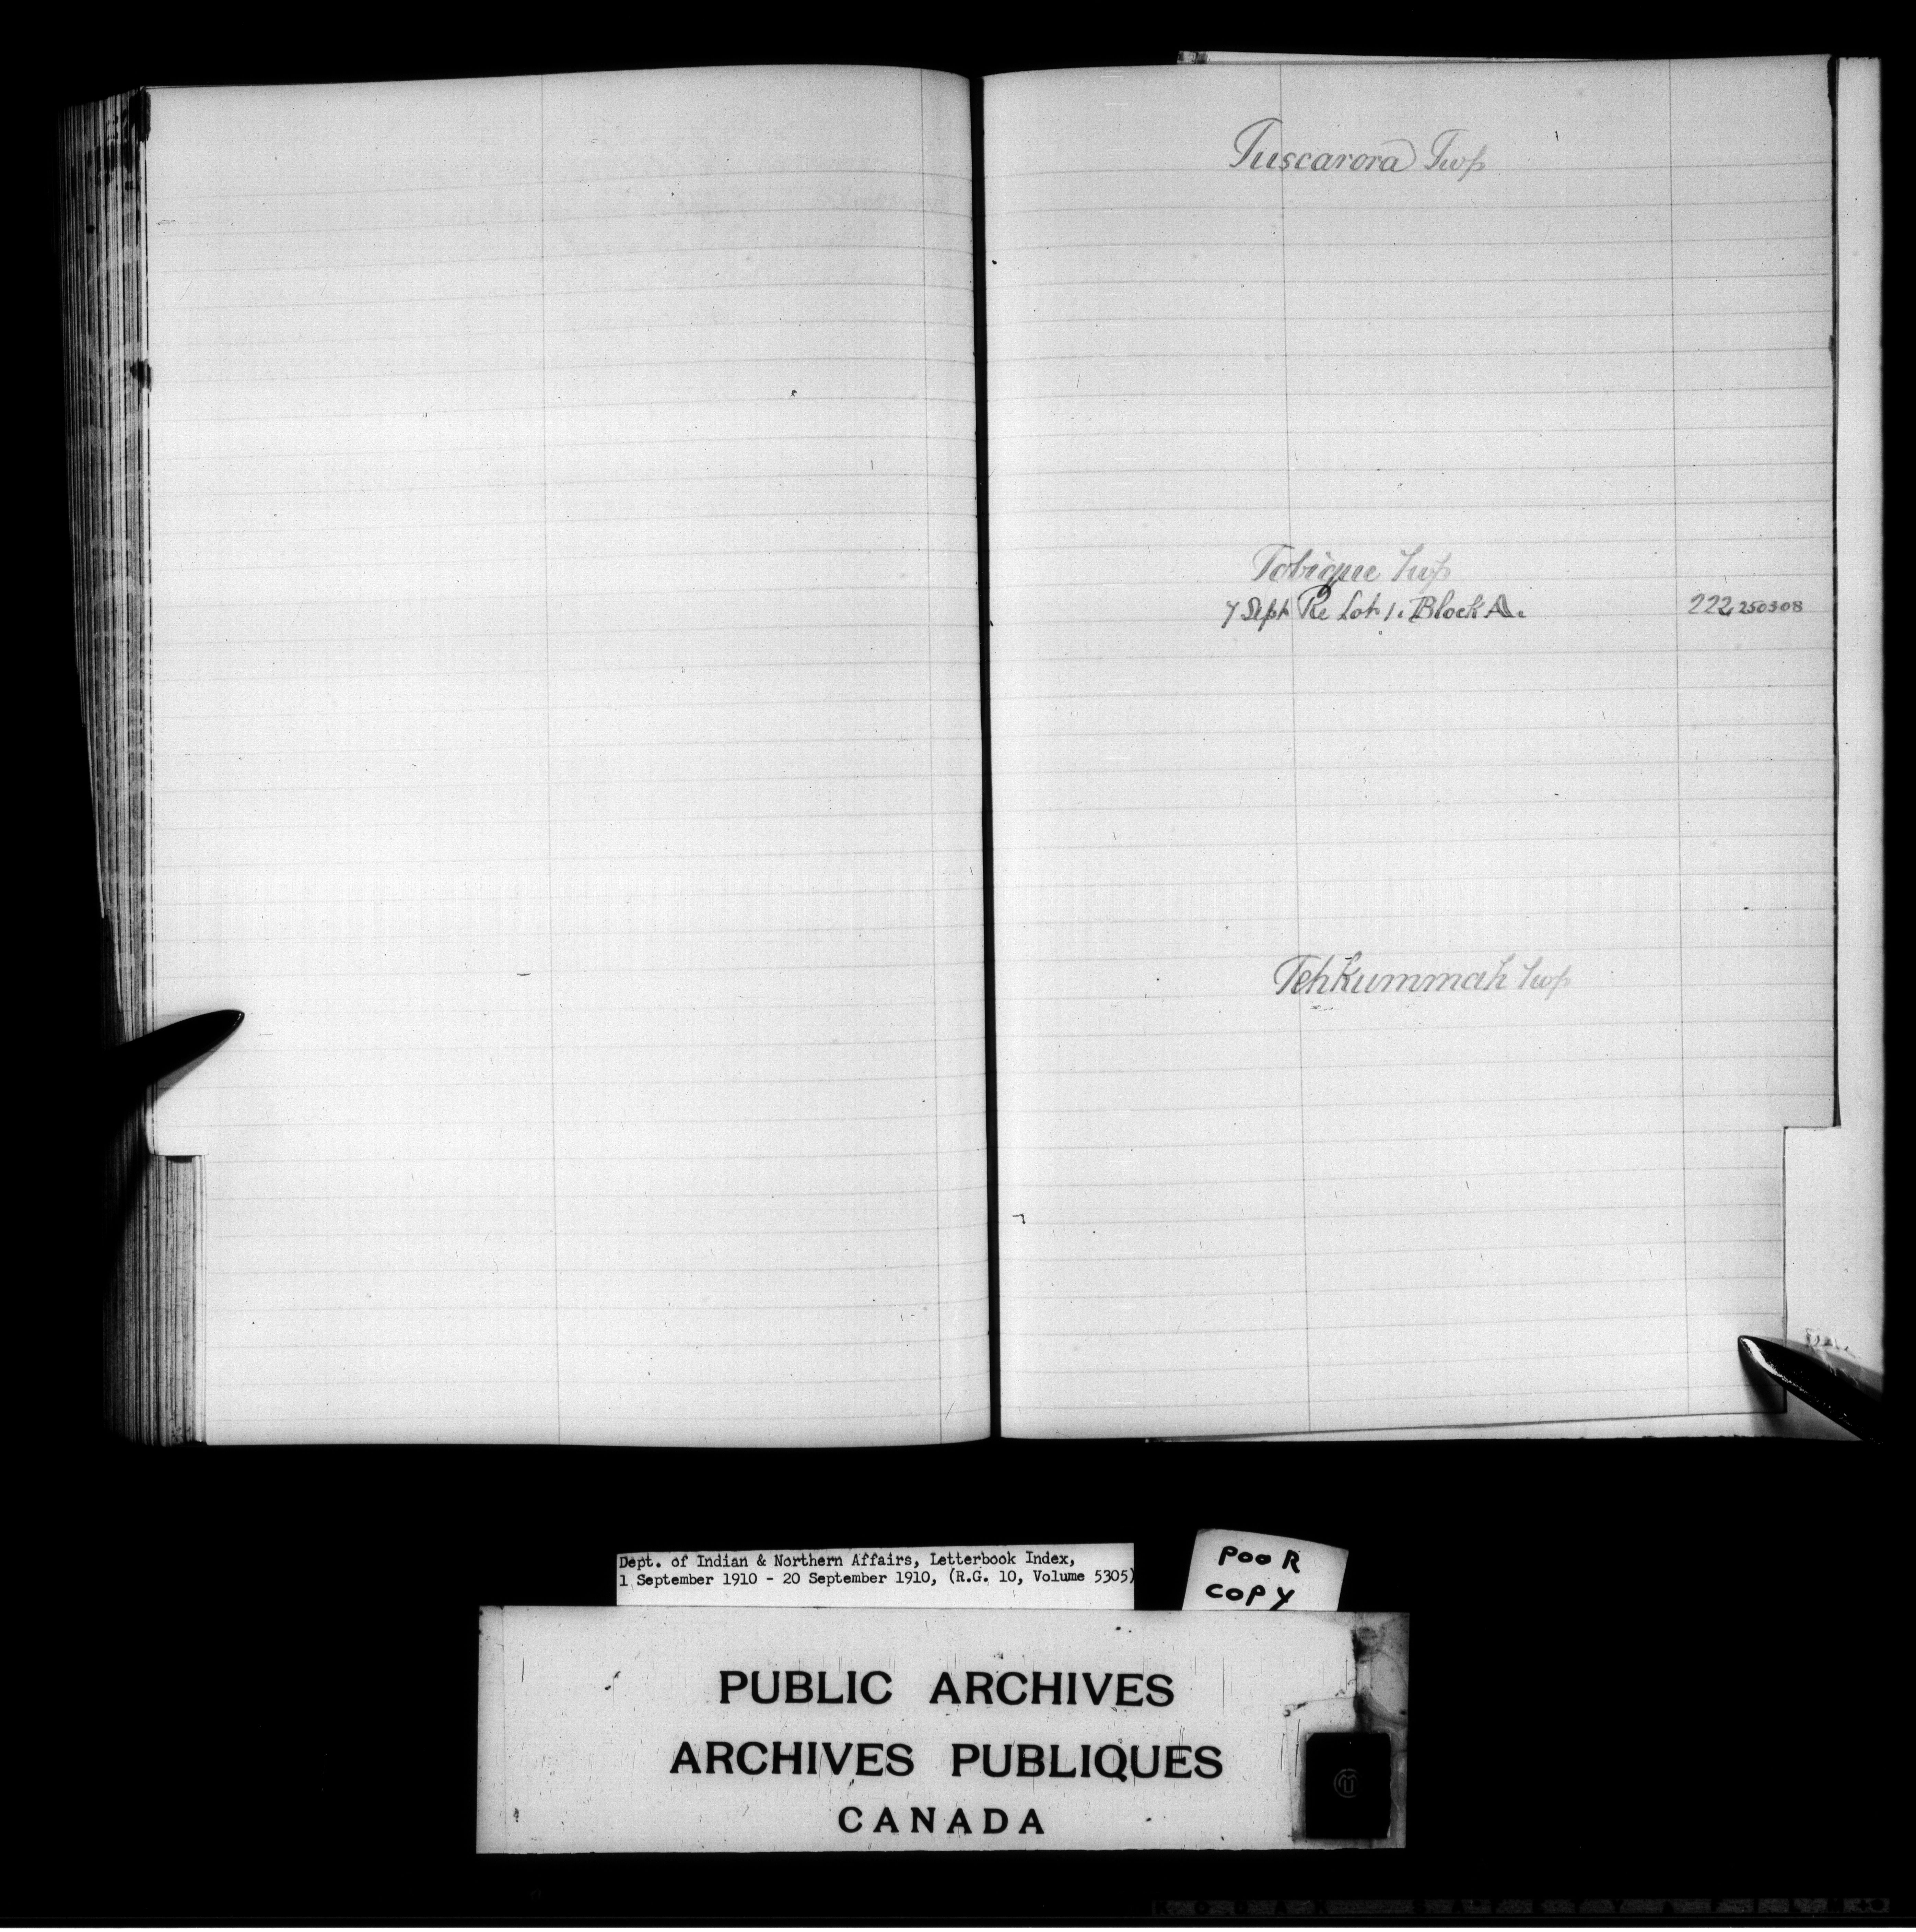 Tuscarora Twp
Tobique Twp
7 Sept Re Lot 1. Block A. 222 250308
Tehkummah Twp
Dept. of Indian & Northern Affairs, Letterbook Index,
1 September 1910 - 20 September 1910, (R.G. 10, Volume 5305)
POOR
COPY
PUBLIC ARCHIVES
ARCHIVES PUBLIQUES
CANADA